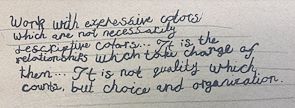 Work with expressive colors
which are not necessarily
descriptive colors... It is the
relationships which take charge of
them... It is not quality which
counts, but choice and organization.